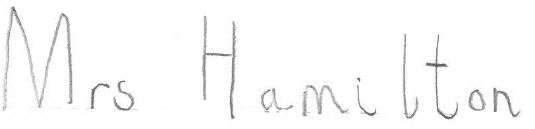 Mrs Hamilton